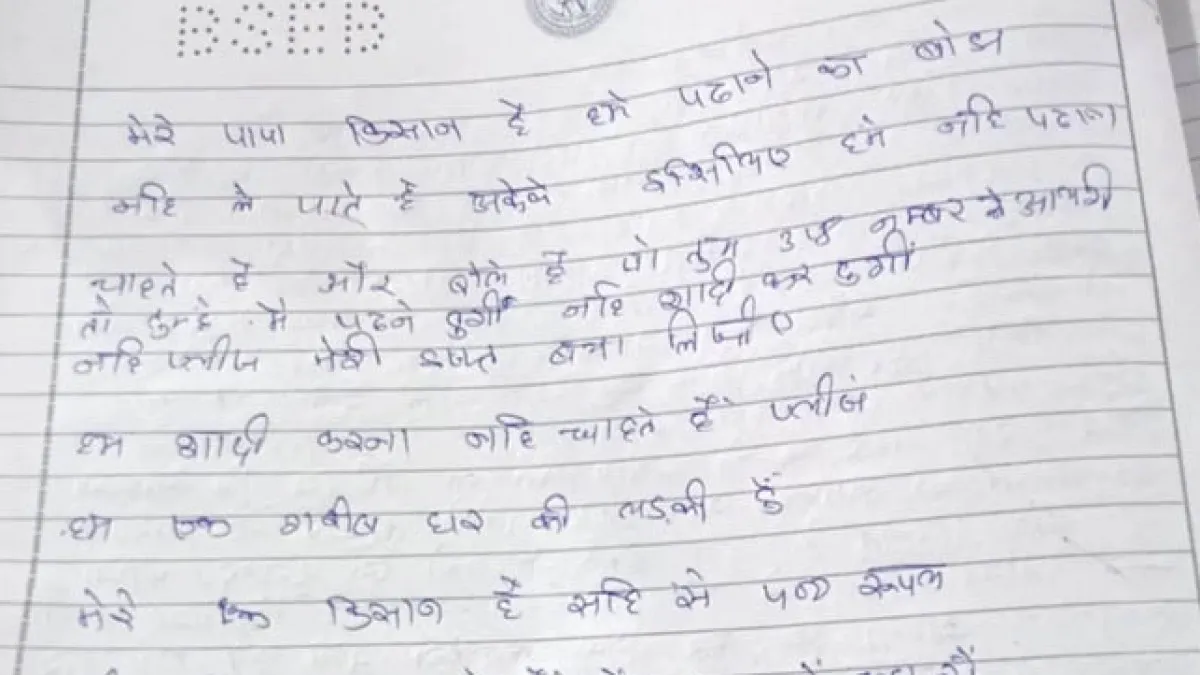 BSEB
मेरे पापा किसान है हमे पढाने का बोझ
नहि ले पाते है अकेले इसिलिए हमे नहि पढाना
चाहते है और बोले है तुम नम्बर से आयगी
तो तुम्हे मै पढने दुगीं नहि शादी कर दुगीं
नहि प्लीज मेरी इजत बचा लिजीए
हम शादी करना नहि चाहते हैं प्लीजं
हम एक गरीब घर की लड़की हुँ
मेरे एक किसान है सहि से